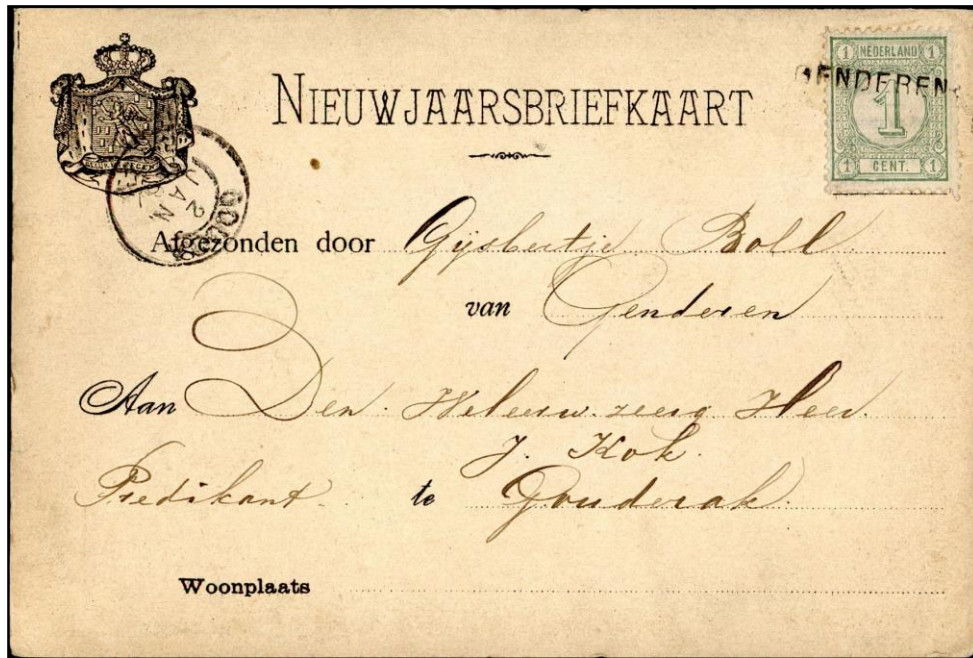 NIEUWJAARSBRIEFKAART
1 NEDERLAND 1
GENDEREN
1
1 CENT. 1
2 JAN
Afgezonden door Gijsbertje Boll.
van Genderen
Aan Den Weleerw. zeerg Heer
J. Kok.
Predikant. te Gouderak.
Woonplaats